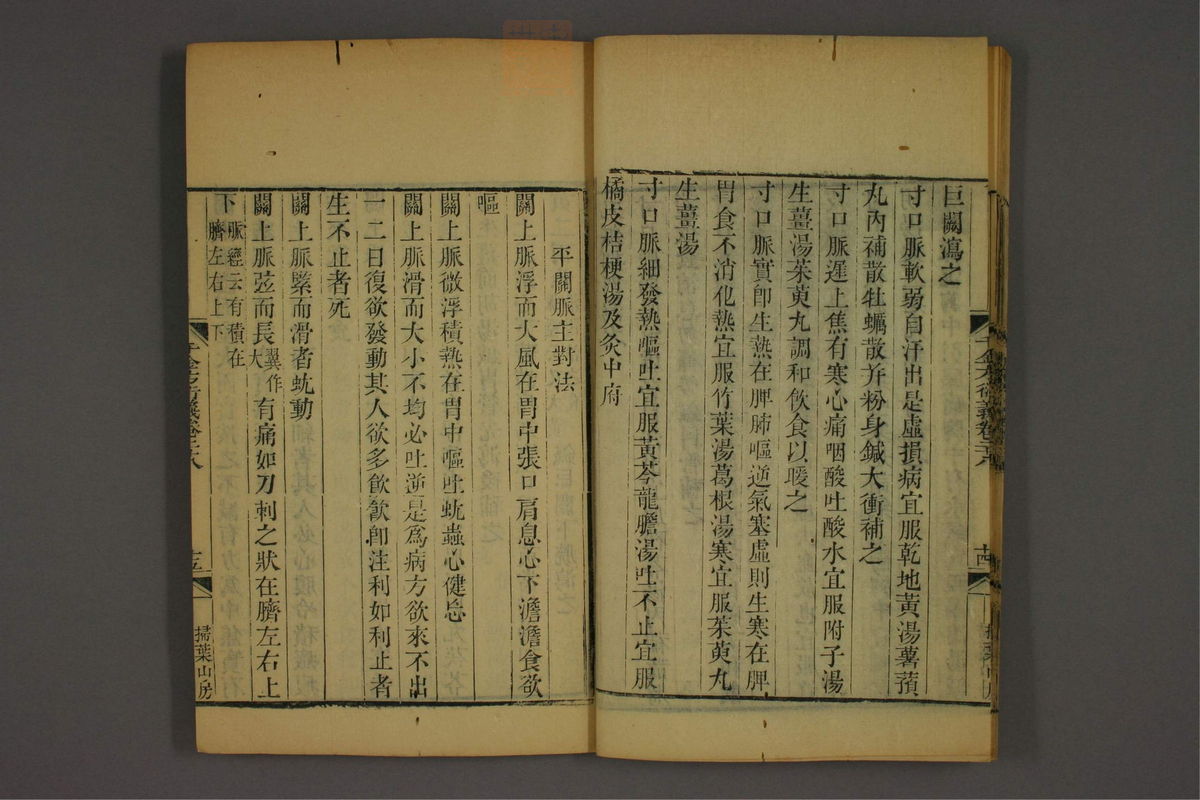 巨闕瀉之
寸口脈軟弱自汗出是虛損病宜服乾地黃湯薯蕷
丸內補散牡蠣散并粉身鍼大衝補之
寸口脈遲上焦有寒心痛咽酸吐酸水宜服附子湯
生薑湯茱萸丸調和飲食以暖之
寸口脈實卽生熱在脾肺嘔逆氣塞虛則生寒在脾
胃食不消化熱宜服竹葉湯葛根湯寒宜服茱萸丸
生薑湯
寸口脈細發熱嘔吐宜服黃芩龍膽湯吐不止宜服
橘皮桔梗湯及灸中府
千金方衍義卷二十八
十四
掃葉山房
平關脈主對法
關上脈浮而大風在胃中張口肩息心下澹澹食欲
嘔
關上脈微浮積熱在胃中嘔吐蚘蟲心健忘
關上脈滑而大小不均必吐逆是爲病方欲來不出
一二日復欲發動其人欲多飲飲卽注利如利止者
生不止者死
關上脈緊而滑者蚘動
關上脈弦而長翼作大有痛如刀刺之狀在臍左右上
下脈經云有積在臍左右上下
千金方衍義卷二十八
十五
掃葉山房